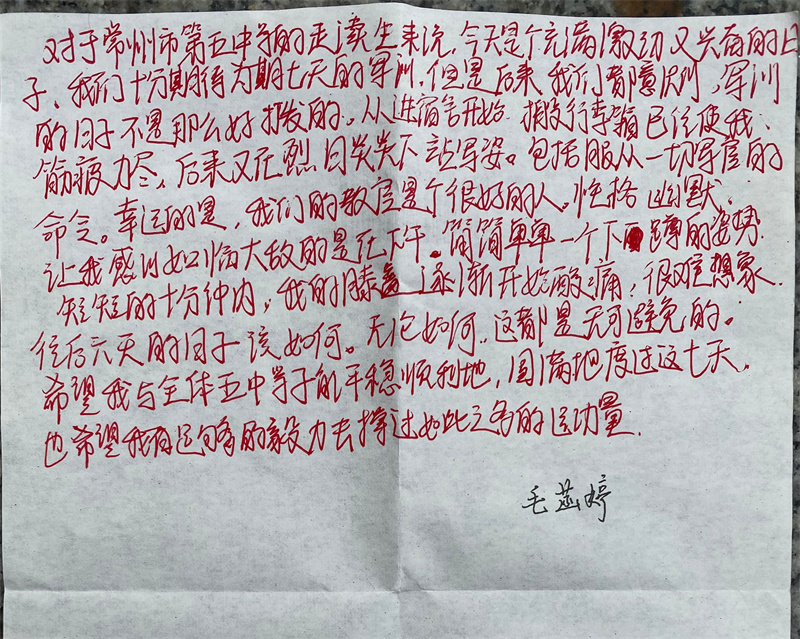 对于常州市第五中学的走读生来说，今天是个充满激动又兴奋的日
子，我们十分期待为期七天的军训，但是后来我们都意识到，军训
的日子不是那么好打发的。从进宿舍开始 搬行李箱已经使我
筋疲力尽，后来又在烈日炎炎下站军姿。包括服从一切军官的
命令。幸运的是，我们的教官是个很好的人。性格幽默。
让我感到如临大敌的是在下午。简简单单一个下蹲的姿势.
短短的十分钟内，我的膝盖逐渐开始酸痛，很难想象.
往后六天的日子该如何。无论如何，这都是无可避免的。
希望我与全体五中学子能平稳顺利地，圆满地度过这七天.
也希望我有足够的毅力去撑过如此之多的运动量.
毛 婷